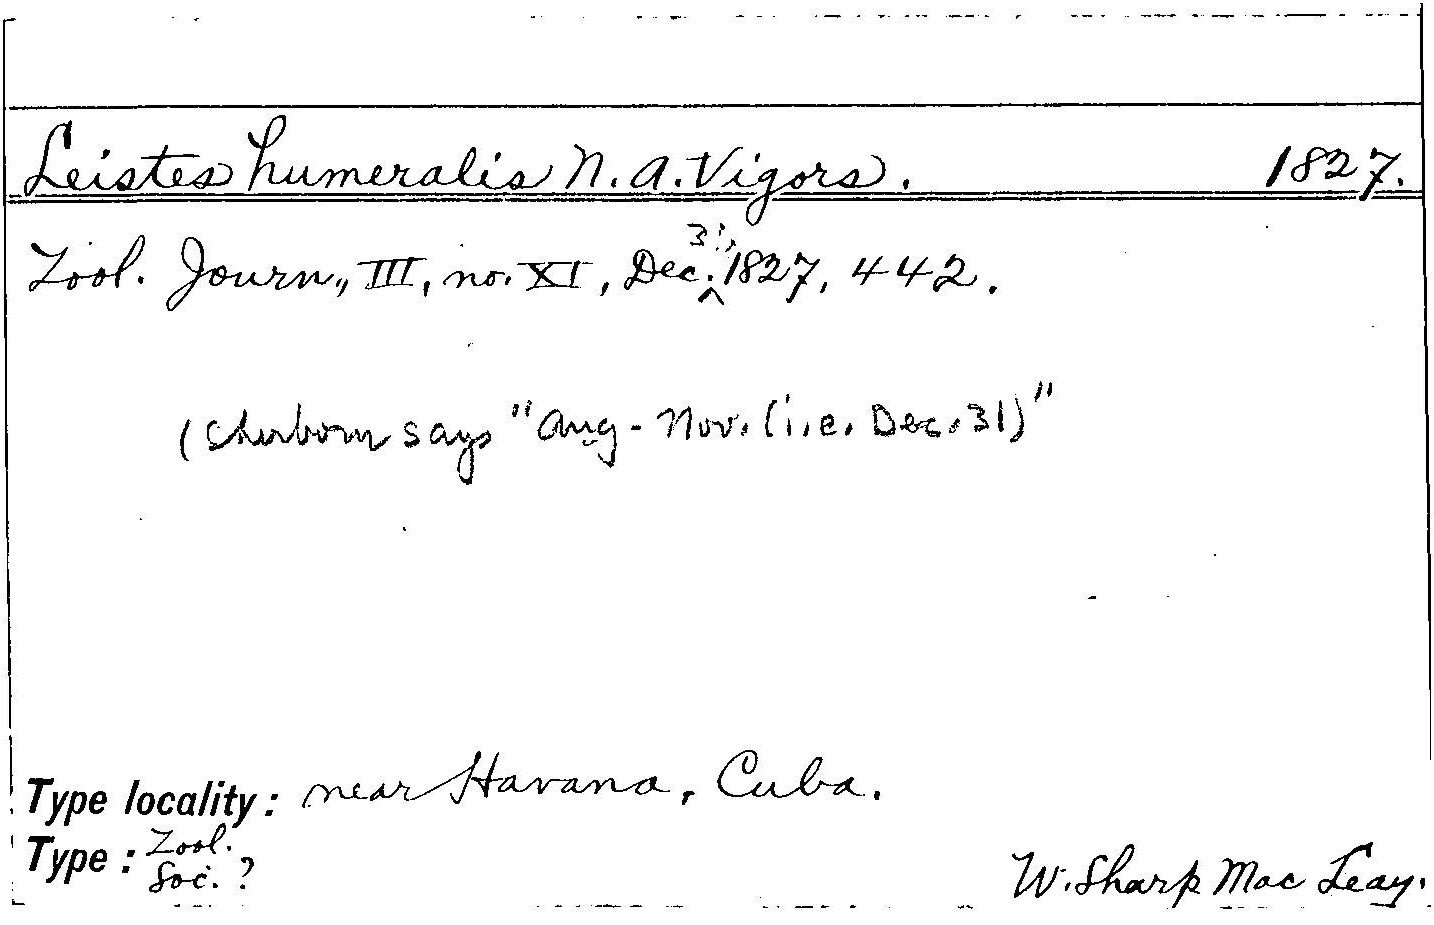 Leistes humeralis N. A. Vigors. 1827.
Zool. Journ., III, no. XI, Dec. 31, 1827, 442.
(Sherborn says "Aug - Nov. (i.e. Dec. 31)"
Type locality: near Havana, Cuba.
Type: Zool. Soc. ?
W. Sharp Mac Leay.